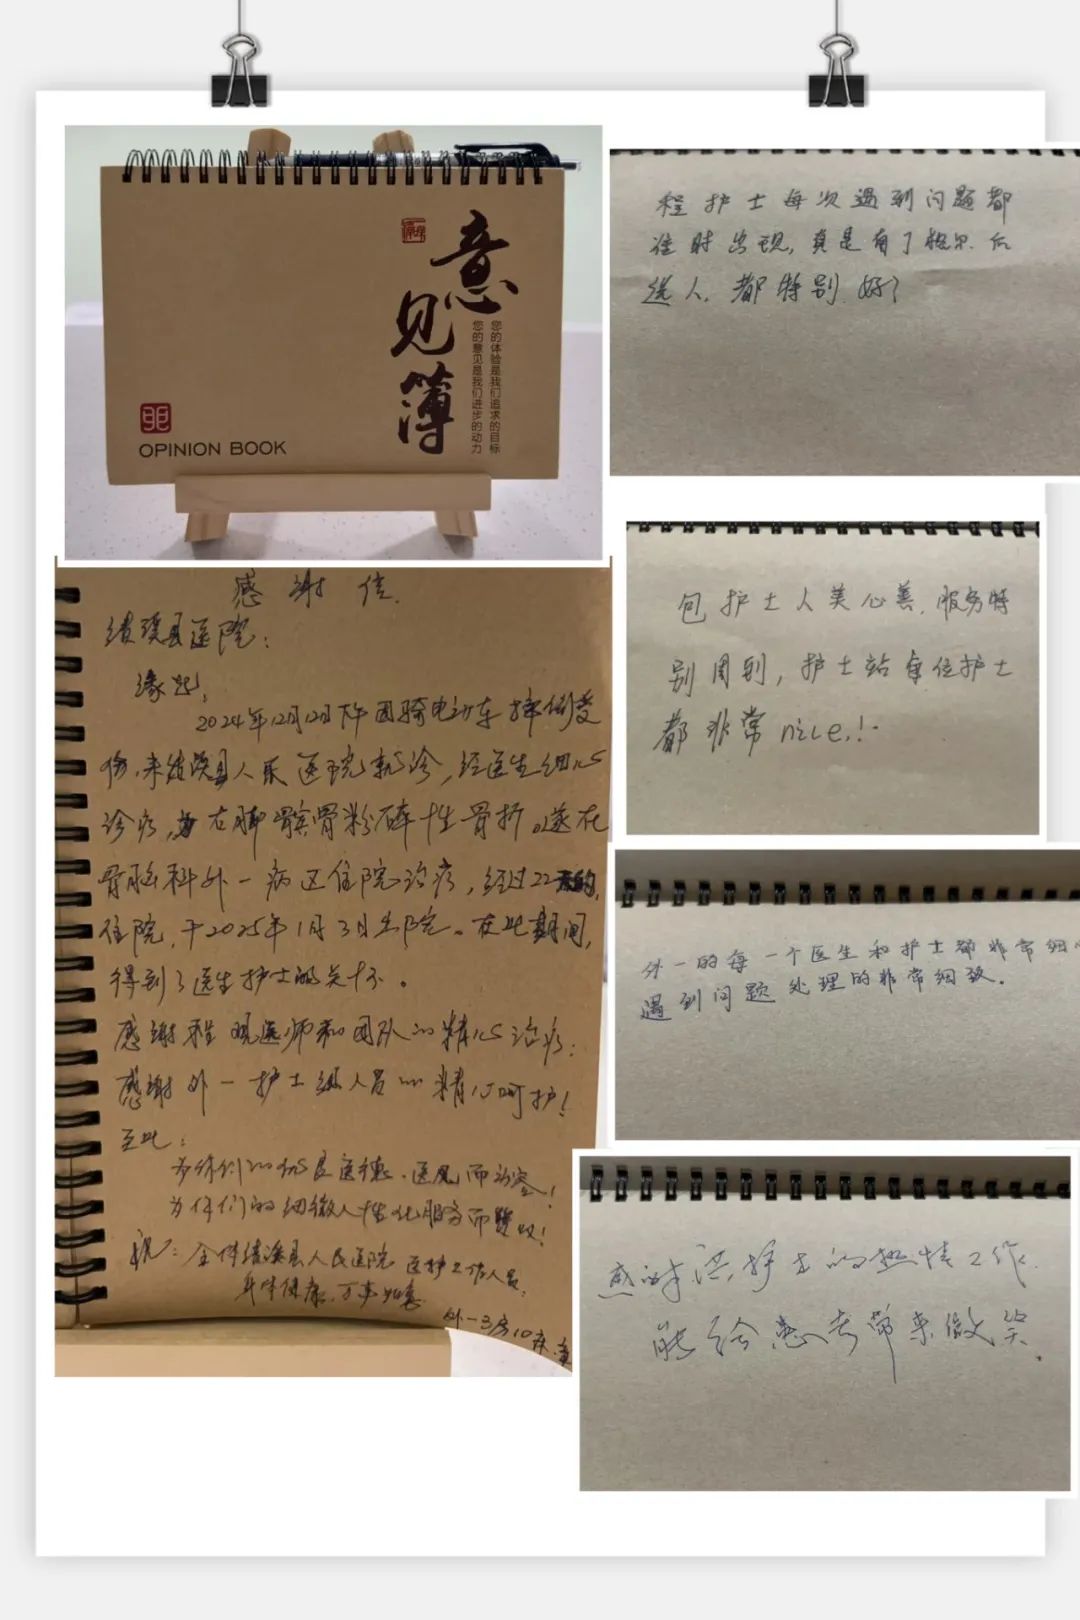 意见簿
您的体验是我们追求的目标
您的意见是我们进步的动力
OPINION BOOK
程护士每次遇到问题都
准时出现,真是有了
选人,都特别好了
包护士人美心善,服务特
别周到,护士站每位护士
都非常nice!
外一的每一个医生和护士都非常细心
遇到问题处理的非常细致。
感谢洪护士的热情工作.
能给患者带来微笑.
感谢信
绩溪县医院:
缘起,
2024年12月12日下午因骑电动车摔倒受
伤,来绩溪县人民医院就诊,经医生细心
诊疗,为右脚髌骨粉碎性骨折。遂在
骨脑科外一病区住院治疗,经过22天的
住院,于2025年1月3日出院。在此期间,
得到了医生护士的关怀。
感谢程观医师和团队的精心治疗;
感谢外一护士组人员的精心呵护!
至此:
为你们的优良医德、医风而
为你们的细微人性化服务而赞叹!
祝:全体绩溪县人民医院医护工作人员,
身体健康,万事如意
外一3房10床.章